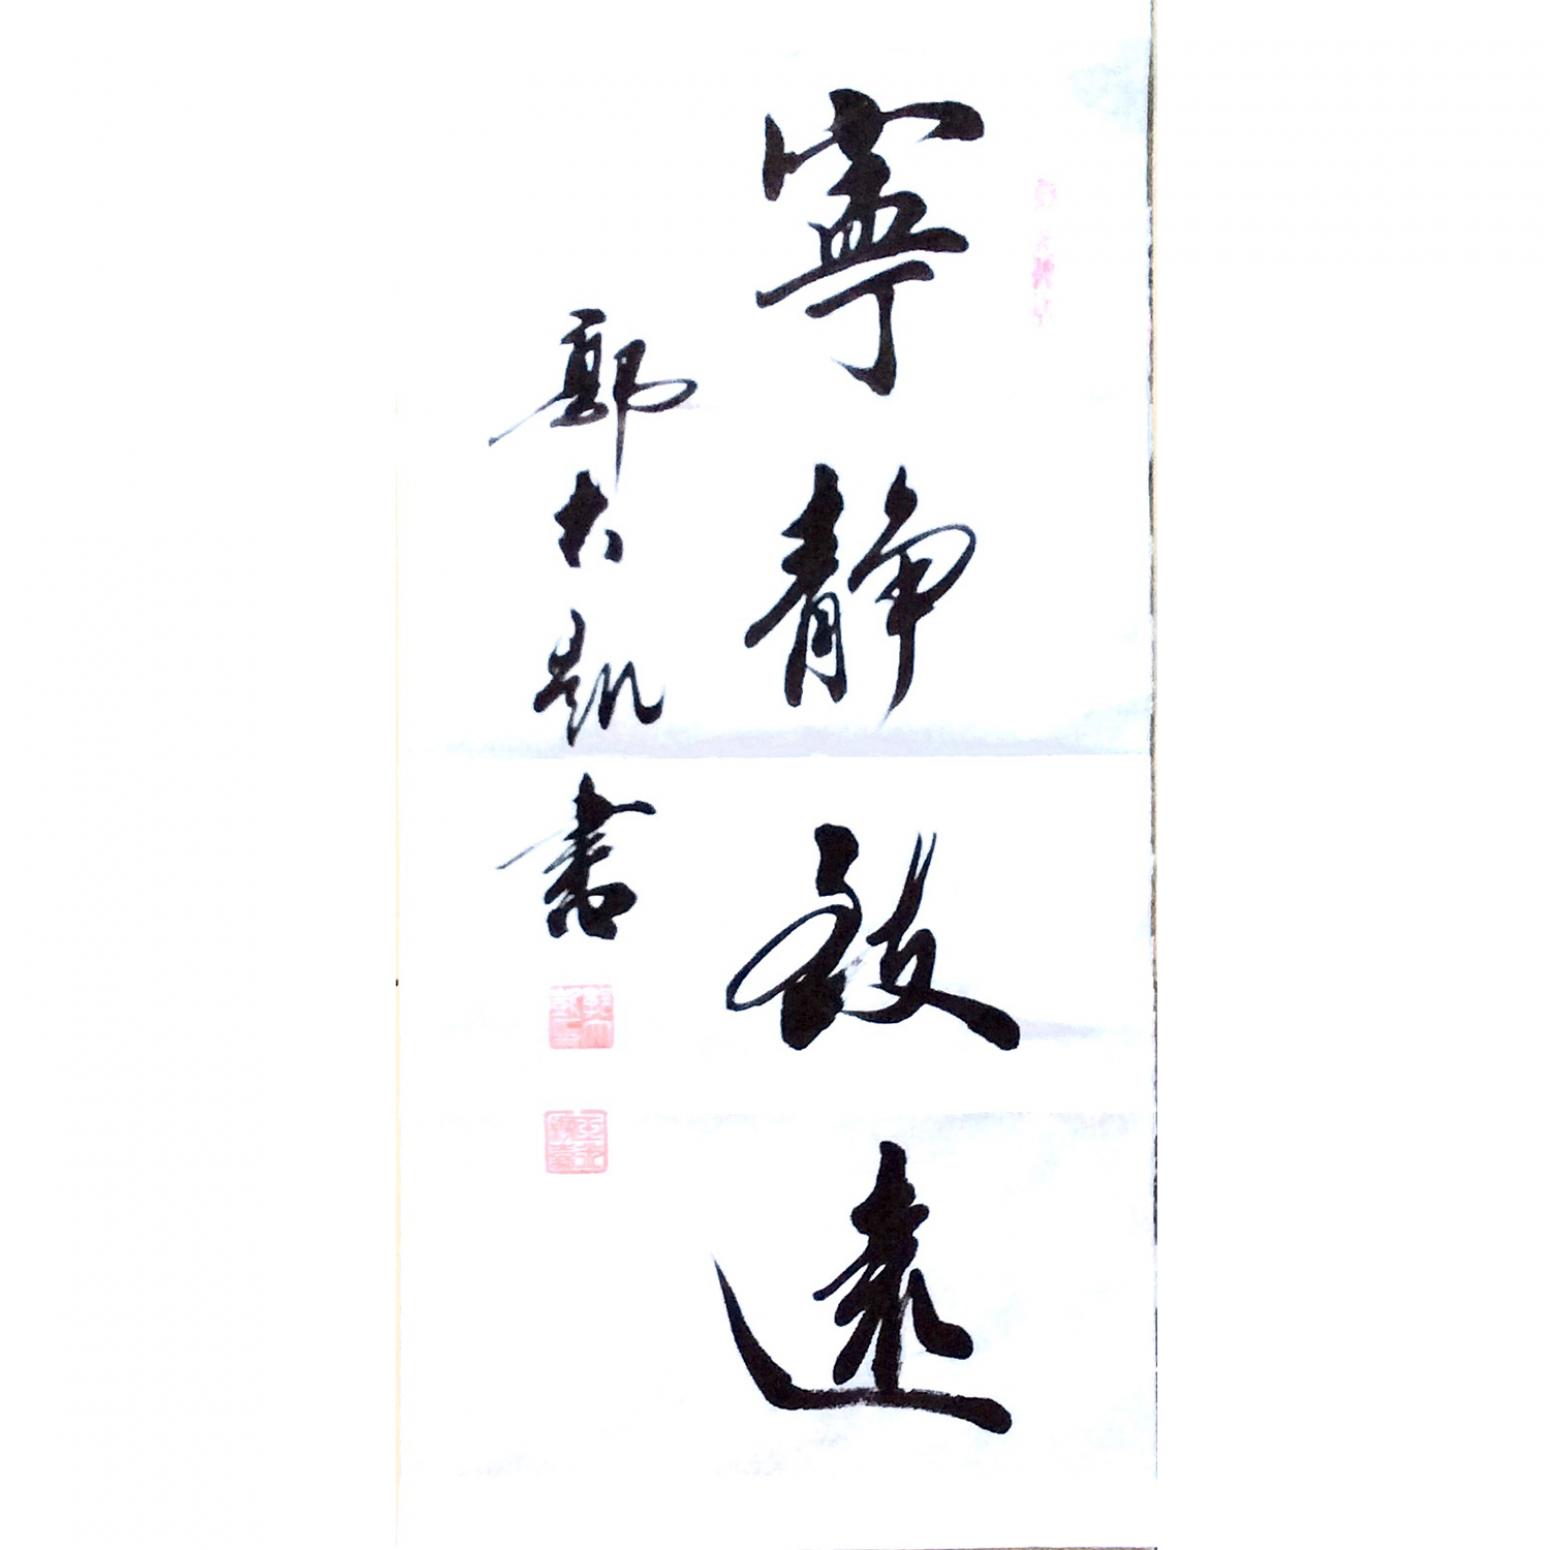 寧静致遠
郭大凱書